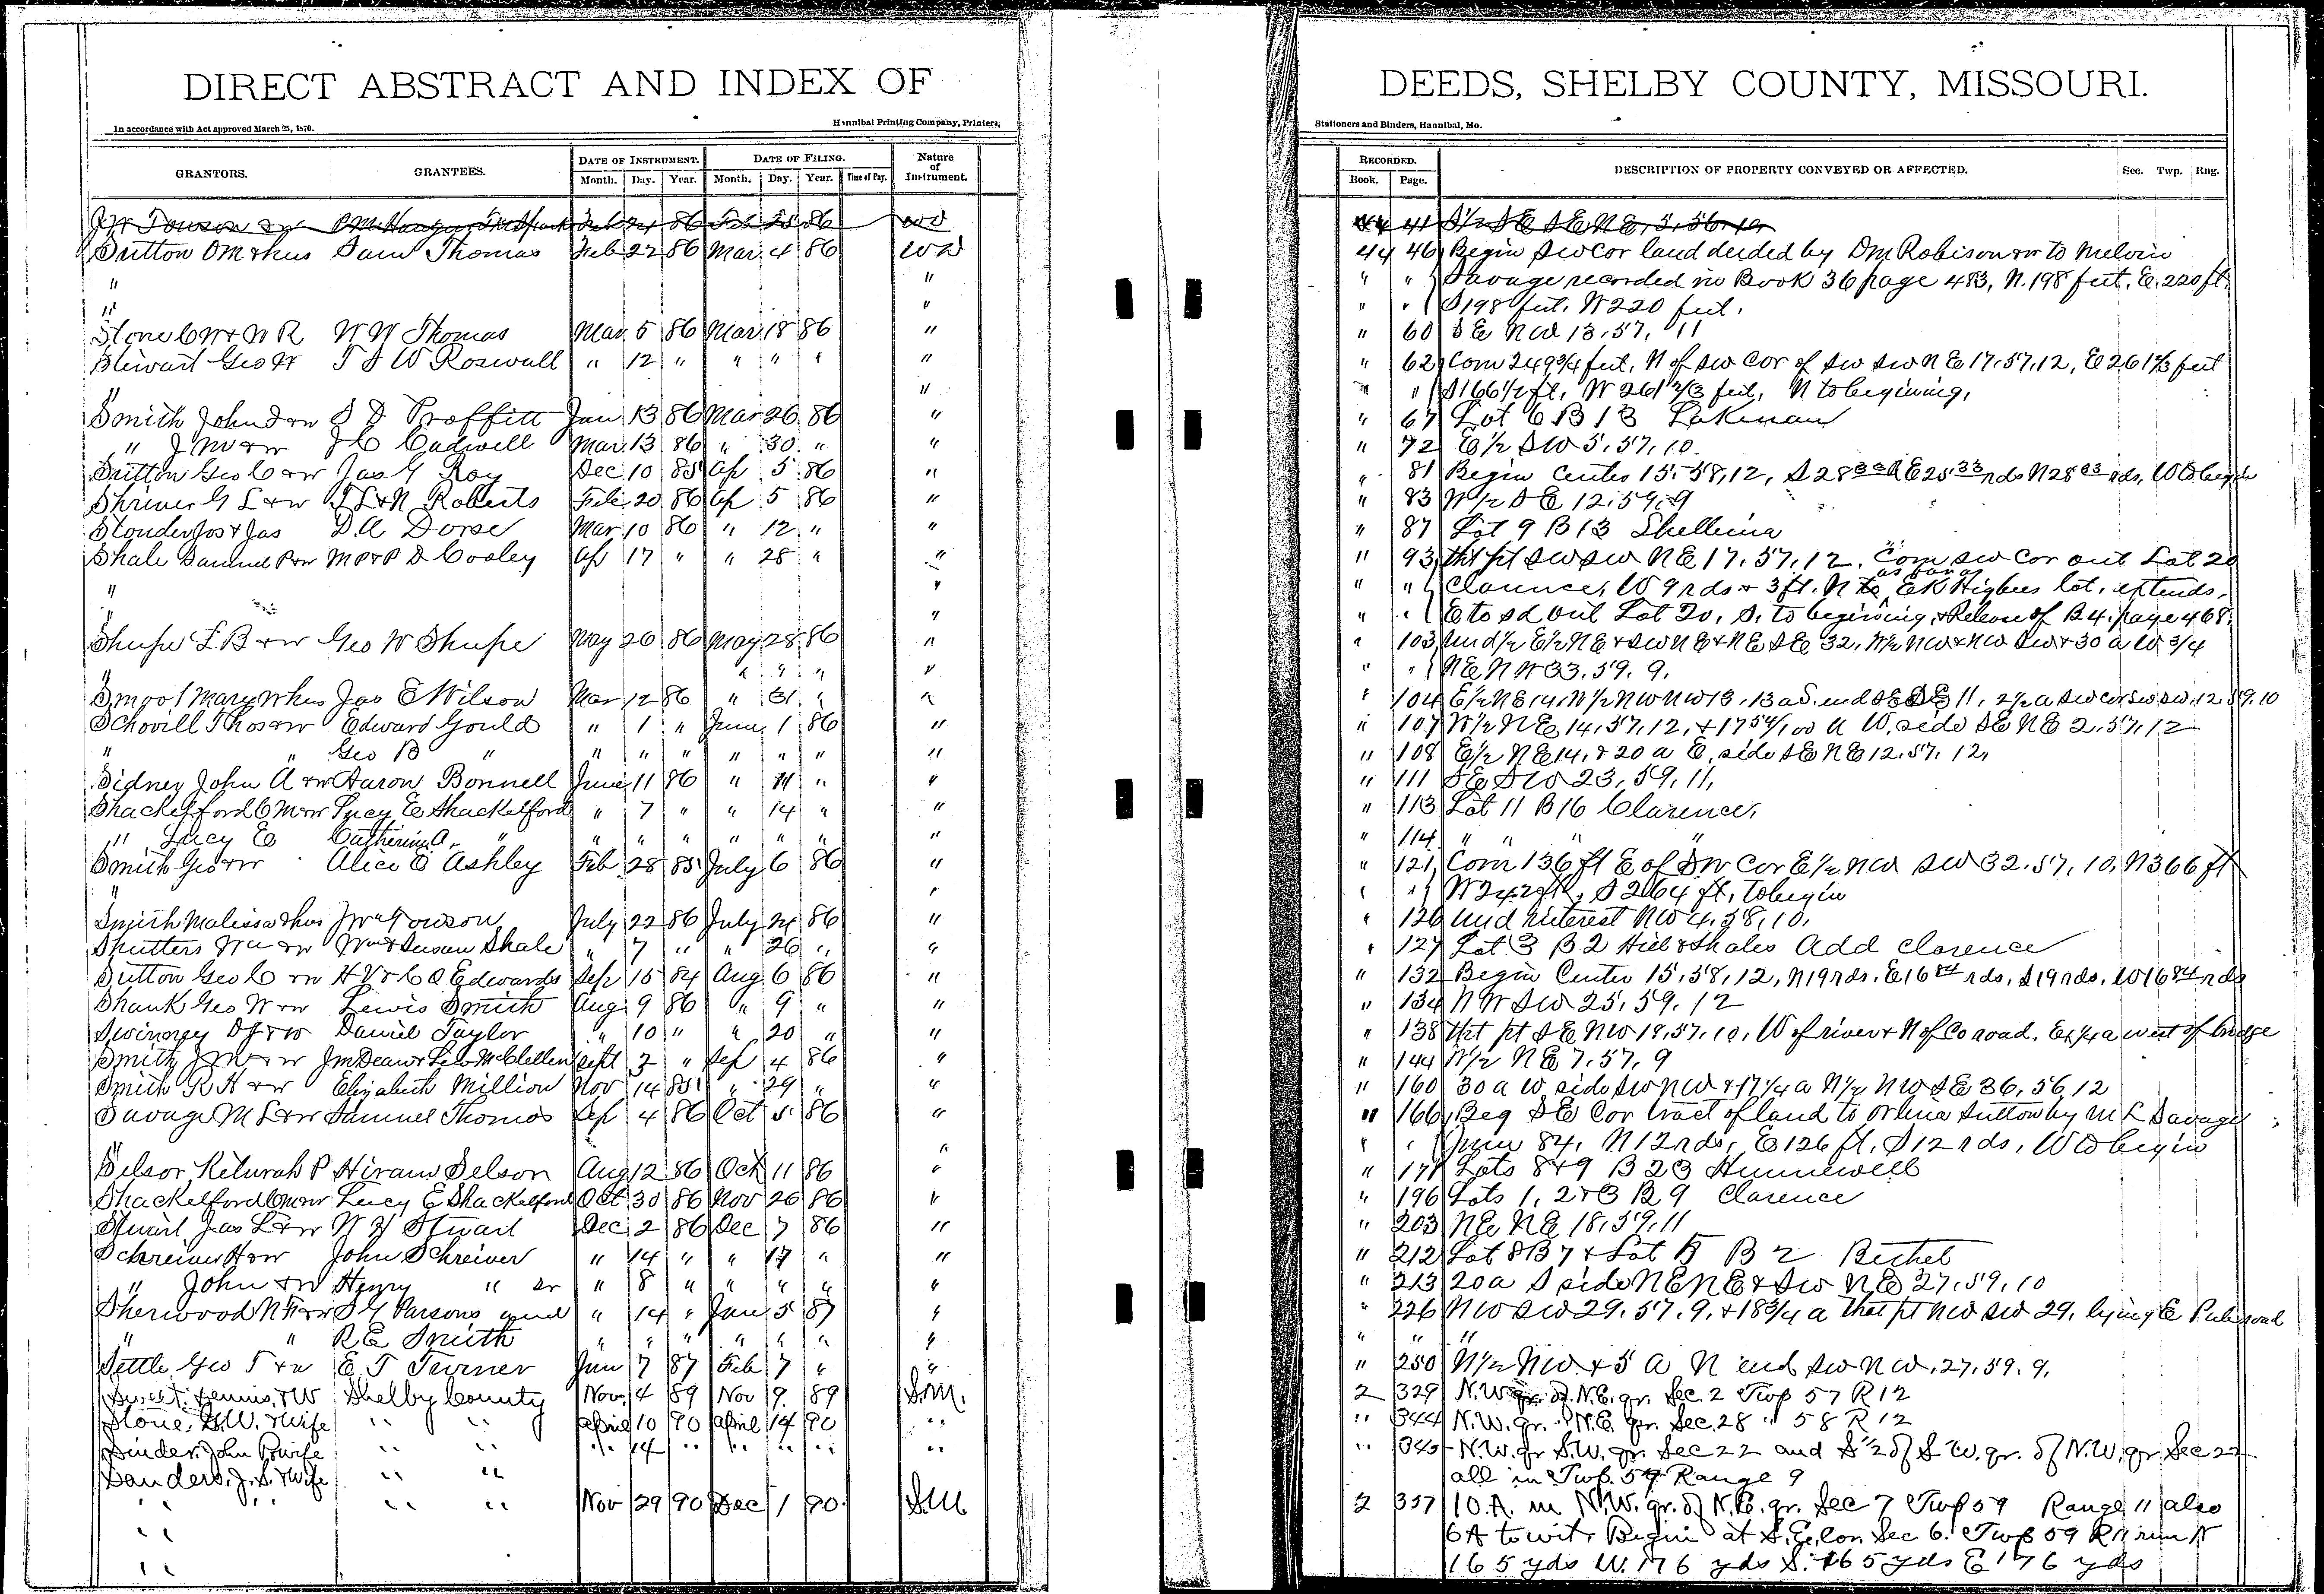 DIRECT ABSTRACT AND INDEX OF DEEDS, SHELBY COUNTY, MISSOURI.
In accordance with Act approved March 25, 1870. Hannibal Printing Company, Printers, Stationers and Binders, Hannibal, Mo.
GRANTORS. GRANTEES. DATE OF INSTRUMENT. DATE OF FILING. Nature of Instrument. RECORDED. DESCRIPTION OF PROPERTY CONVEYED OR AFFECTED. Sec. Twp. Rng.
Month. Day. Year. Month. Day. Year. Time of Day. Book. Page.
J W Towson &w Feb 24 86 Feb 25 86 WD 44 41 S½ SE SE NE, 5, 56, 10,
Sutton O M & hus Saml Thomas Feb 22 86 Mar 4 86 WD 44 46 Begin SW Cor land deeded by D M Robison &w to Melvin
" " " " Savage recorded in Book 36 page 483, N. 198 feet, E. 220 ft.
" " " " S 198 feet, W 220 feet.
Stone C W & W R W W Thomas Mar 5 86 Mar 18 86 " " 60 SE NW 13, 57, 11
Stewart Geo H T J W Roswall " 12 " " " " " " 62 Com 249¾ feet, N of SW Cor of SW SW NE 17, 57, 12, E 261⅔ feet
" " " S 166½ ft, W 261⅔ feet, N to beginning,
Smith John D &w S D Proffitt Jan 13 86 Mar 26 86 " " 67 Lot 6 B 13 Lakenan
" J M &w J C Cadwell Mar 13 86 " 30 " " " 72 E½ SW 5, 57, 10.
Sutton Geo C &w Jas G Ray Dec 10 85 Ap 5 86 " " 81 Begin Center 15, 58, 12, S 28 33 E 25 33 rds N 28 33 rds, W to begin
Shriver G L &w J L & N Roberts Feb 20 86 Ap 5 86 " " 83 W½ SE 12, 59, 9
Stonder Jos & Jas D. A Dorse Mar 10 86 " 12 " " " 87 Lot 9 B 13 Shelbina
Shale Samuel P &w M P & P D Cooley Ap 17 " " 28 " " " 93 tht pt SW SW NE 17, 57, 12. Com SW Cor out Lot 20
" " " " Clarence, W 9 rds & 3 ft. N to as far as E K Higbees lot, extends,
" " " " E to sd out Lot 20, S. to beginning, & Release of B 4. page 468.
Shupe L B &w Geo W Shupe May 26 86 May 28 86 " " 103 und ½ E½ NE & SW NE & NE SE 32, W½ NW & NW SW & 30 a W ¾
" " " " " " " NE NW 33, 59, 9.
Smoot Mary W hus Jas E Wilson Mar 12 86 " 31 " " " 104 E½ NE 14, N½ NW NW 13, 13 a S. end SE SE 11, 2½ a SW cor SW SW, 12, 59, 10
Schovill Thos &w Edward Gould " 1 " June 1 86 " " 107 W½ NE 14, 57, 12, & 17 54/100 a W. side SE NE 2, 57, 12
" " Geo B " " " " " " " " " 108 E½ NE 14, & 20 a E, side SE NE 12, 57, 12,
Sidney John A &w Aaron Bonnell June 11 86 " 11 " " " 111 SE SW 23, 59, 11,
Shackelford C M &w Lucy E Shackelford " 7 " " 14 " " " 113 Lot 11 B 16 Clarence,
" Lucy E Catherine A. " " " " " " " " " 114 " " " "
Smith Geo &w Alice E Ashley Feb 28 85 July 6 86 " " 121 Com 136 ft E of SW Cor E½ NW SW 32, 57, 10, N 366 ft
" " " " W 242 ft, S 264 ft, to begin
Smith Malissa & hus J W Towson July 22 86 July 24 86 " " 126 und interest NW 4, 58, 10,
Shutters Wm &w Wm & Susan Shale " 7 " " 26 " " " 127 Lot 3 B 2 Hiel & Shales Add Clarence
Sutton Geo C &w H V & C A Edwards Sep 15 84 Aug 6 86 " " 132 Begin Center 15, 58, 12, N 19 rds, E 16 84 rds, S 19 rds, W 16 84 rds
Shank Geo W &w Lewis Smith Aug 9 86 " 9 " " " 134 NW SW 25, 59, 12
Swinney D J &w Daniel Taylor " 10 " " 20 " " " 138 tht pt SE NW 18, 57, 10, W of river & N of Co road, Ex ¼ a west of bridge
Smith J M &w J M Dean & McClellen Sept 3 " Sep 4 86 " " 144 W½ NE 7, 57, 9
Smith R H &w Elizabeth Million Nov 14 85 " 29 " " " 160 30 a W side SW NW & 17¼ a N½ NW SE 36, 56, 12
Savage M L &w Samuel Thomas Sep 4 86 Oct 5 86 " " 166 Beg SE Cor tract of land to Orlena Sutton by M L Savage
" " " June 84, N 12 rds, E 126 ft, S 12 rds, W to begin
Selsor Keturah P Hiram Selson Aug 12 86 Oct 11 86 " " 171 Lots 8 & 9 B 23 Hunnewell
Shackelford C M &w Lucy E Shackelford Oct 30 86 Nov 26 86 " " 196 Lots 1, 2 & 3 B 9 Clarence
Stuart Jas L &w W H Stuart Dec 2 86 Dec 7 86 " " 203 NE NE 18, 59, 11
Schreiver H &w John Schreiver " 14 " " 17 " " " 212 Lot 8 B 7 & Lot 5 B 2 Bethel
" John &w Henry " sr " 8 " " " " " " 213 20 a S side NE NE & SW NE 27, 59, 10
Sherwood N F &w S G Parsons and " 14 " Jan 5 87 " " 226 NW SW 29, 57, 9, & 18¾ a that pt NW SW 29, lying E Pub road
" " R E Smith " " " " " " " " " "
Settle Geo T &w E T Turner Jan 7 87 Feb 7 " " " 250 N½ NW & 5 a N end SW NW, 27, 59, 9,
Sweet Dennis, & W Shelby County Nov. 4 89 Nov 9. 89 S.M. 2 329 N.W. qr. of N.E. qr. Sec. 2 Twp 57 R 12
Stone, G.W. & Wife " " April 10 90 April 14 90 " " 344 N.W. qr. " N.E. qr. Sec. 28 " 58 R 12
Sinder. John P. wife " " " 14 " " " " " " 345 N.W. qr S.W. qr. Sec 22 and S ½ of S W. qr. of N.W. qr Sec 22
Sanders. J. S. & Wife " " all in Twp. 59 Range 9
" " " " Nov 29 90 Dec 1 90. S.M. 2 357 10. A. in N.W. qr. of N.E. qr. Sec 7 Twp 59 Range 11 also
" " 6 A to wit. Begin at S.E. Cor Sec 6. Twp 59 R 11 run N
" " 165 yds W. 176 yds S. 165 yds E 176 yds